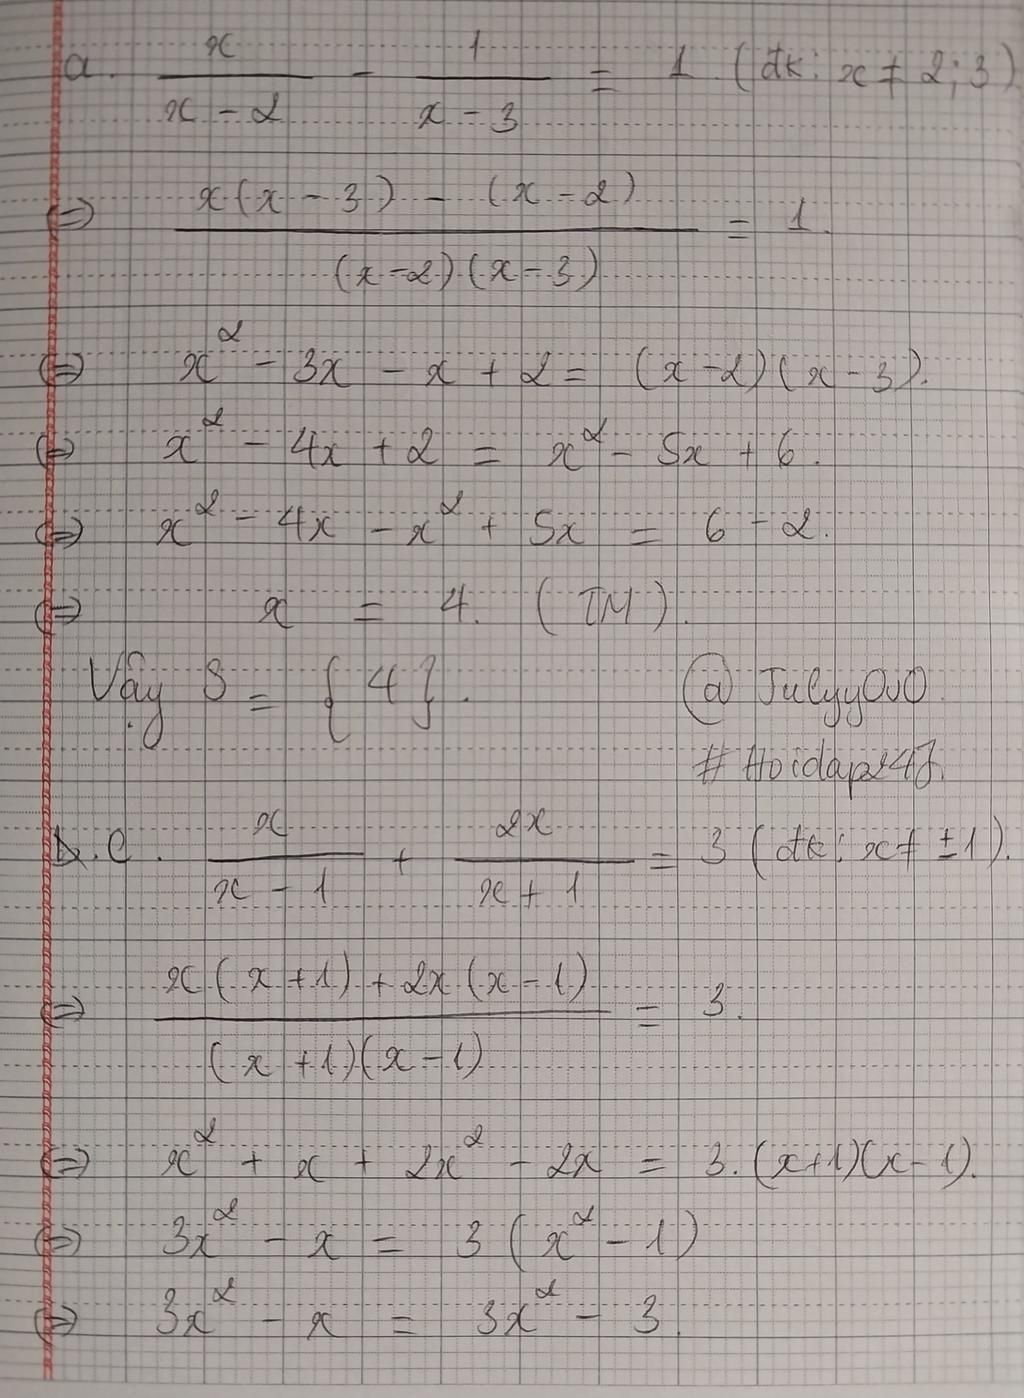 a. x/(x - 2) - 1/(x - 3) = 1 (đk: x ≠ 2; 3)
⇔ (x(x - 3) - (x - 2))/((x - 2)(x - 3)) = 1.
⇔ x² - 3x - x + 2 = (x - 2)(x - 3).
⇔ x² - 4x + 2 = x² - 5x + 6.
⇔ x² - 4x - x² + 5x = 6 - 2.
⇔ x = 4. (TM).
Vậy S = {4}.
@Julyy0v0
#Hoidap247.
c. x/(x - 1) + 2x/(x + 1) = 3 (đk: x ≠ ±1).
⇔ (x(x + 1) + 2x(x - 1))/((x + 1)(x - 1)) = 3.
⇔ x² + x + 2x² - 2x = 3.(x+1)(x-1).
⇔ 3x² - x = 3(x² - 1)
⇔ 3x² - x = 3x² - 3.